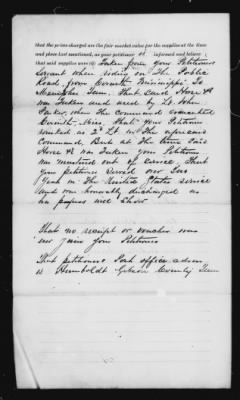 that the prices charged are the fair market value for the supplies at the time
and place last mentioned, as your petitioner is informed and believes;
that said supplies were Taken from your Petitioners
Servant when riding on The Public
Road, from Corinth Mississippi To
Memphis Tenn. That said Horse &
was Taken and used by Lt. John
Parker, when The Command evacuated
Corinth, Miss. That your Petitioner
ranked as 2d Lt. in The
Command, But at the time said
Horse & was Taken your Petitioner
was mustered out of service, That
your Petitioner served over Two
years in The United States Service
and was honorably discharged as
his papers will Show
That no receipt or voucher was
ever given your Petitioner
That petitioners Post office address
is Humboldt Gibson County Tenn